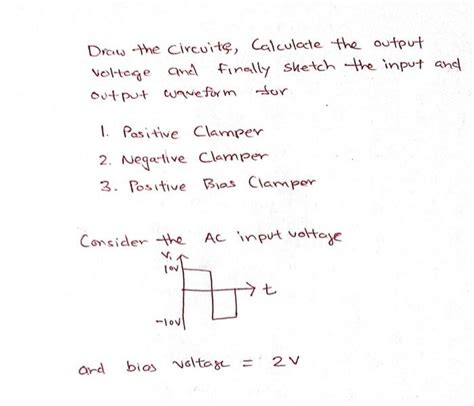 Draw the circuits, Calculate the output
voltage and finally sketch the input and
output waveform for
1. Positive Clamper
2. Negative Clamper
3. Positive Bias Clamper
Consider the AC input voltage
Vi
10V
t
-10V
and bias voltage = 2V